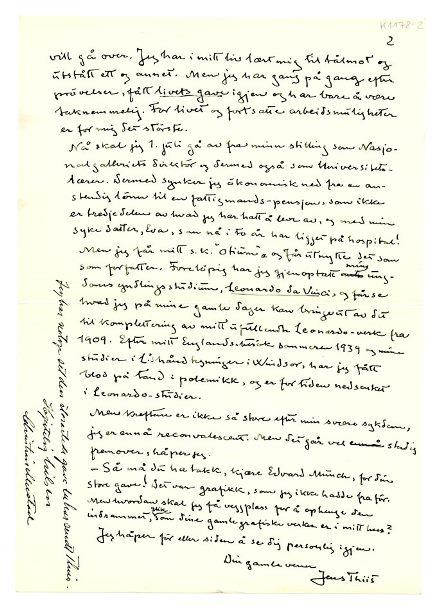 K1178-2
2
vill gå over. Jeg har i mitt liv lært mig til tålmot og
utstått ett og annet. Men jeg har gang på gang efter
prövelser, fått livets gave igjen og har bare å være
taknemmelig. For livet og fortsatte arbeidsmuligheter
er for mig det störste.
Nå skal jeg 1. juli gå av fra min stilling som Nasjo-
nalgalleriets direktör og dermed også som Universitets-
lærer. Dermed synker jeg ökonomisk ned fra en an-
stendig lönn til en fattigmands-pensjon, som ikke
er tredjedelen av hvad jeg har hatt å leve av, og med min
syke datter, Eva, som nå i to år har ligget på hospital!
Men jeg får mitt s.k. "Otium" og får utnytte det som
som forfatter. Foreløpig har jeg gjenoptatt min ung-
doms yndlingsstudium, Leonardo da Vinci, og får se
hvad jeg på mine gamle dager kan bringe ut av det
til komplettering av mitt ufullendte Leonardo-verk fra
1909. Efter mitt Englands-besök sommeren 1939 og mine
studier i L's håndtegninger i Windsor, har jeg fått
blod på tand i polemikk, og er for tiden nedsenket
i Leonardo-studier.
Men kreftene er ikke så store efter min svære sykdom,
jeg er ennå reconvalescent. Men det går vel stadig
fremover, håper jeg.
– Så må du ha takk, kjære Edvard Munch, for din
store gave! Det var grafikk, som jeg ikke hadde fra för.
Men hvordan skal jeg få veggplass for å ophenge den
indrammet, slik som dine gamle grafiske verker er i mitt hus?
Jeg håper för eller siden å se dig personlig igjen.
Din gamle venn
Jens Thiis
Jeg har netop sett den utsøkte gave du har sendt Thiis.
Hjertelig hilsen